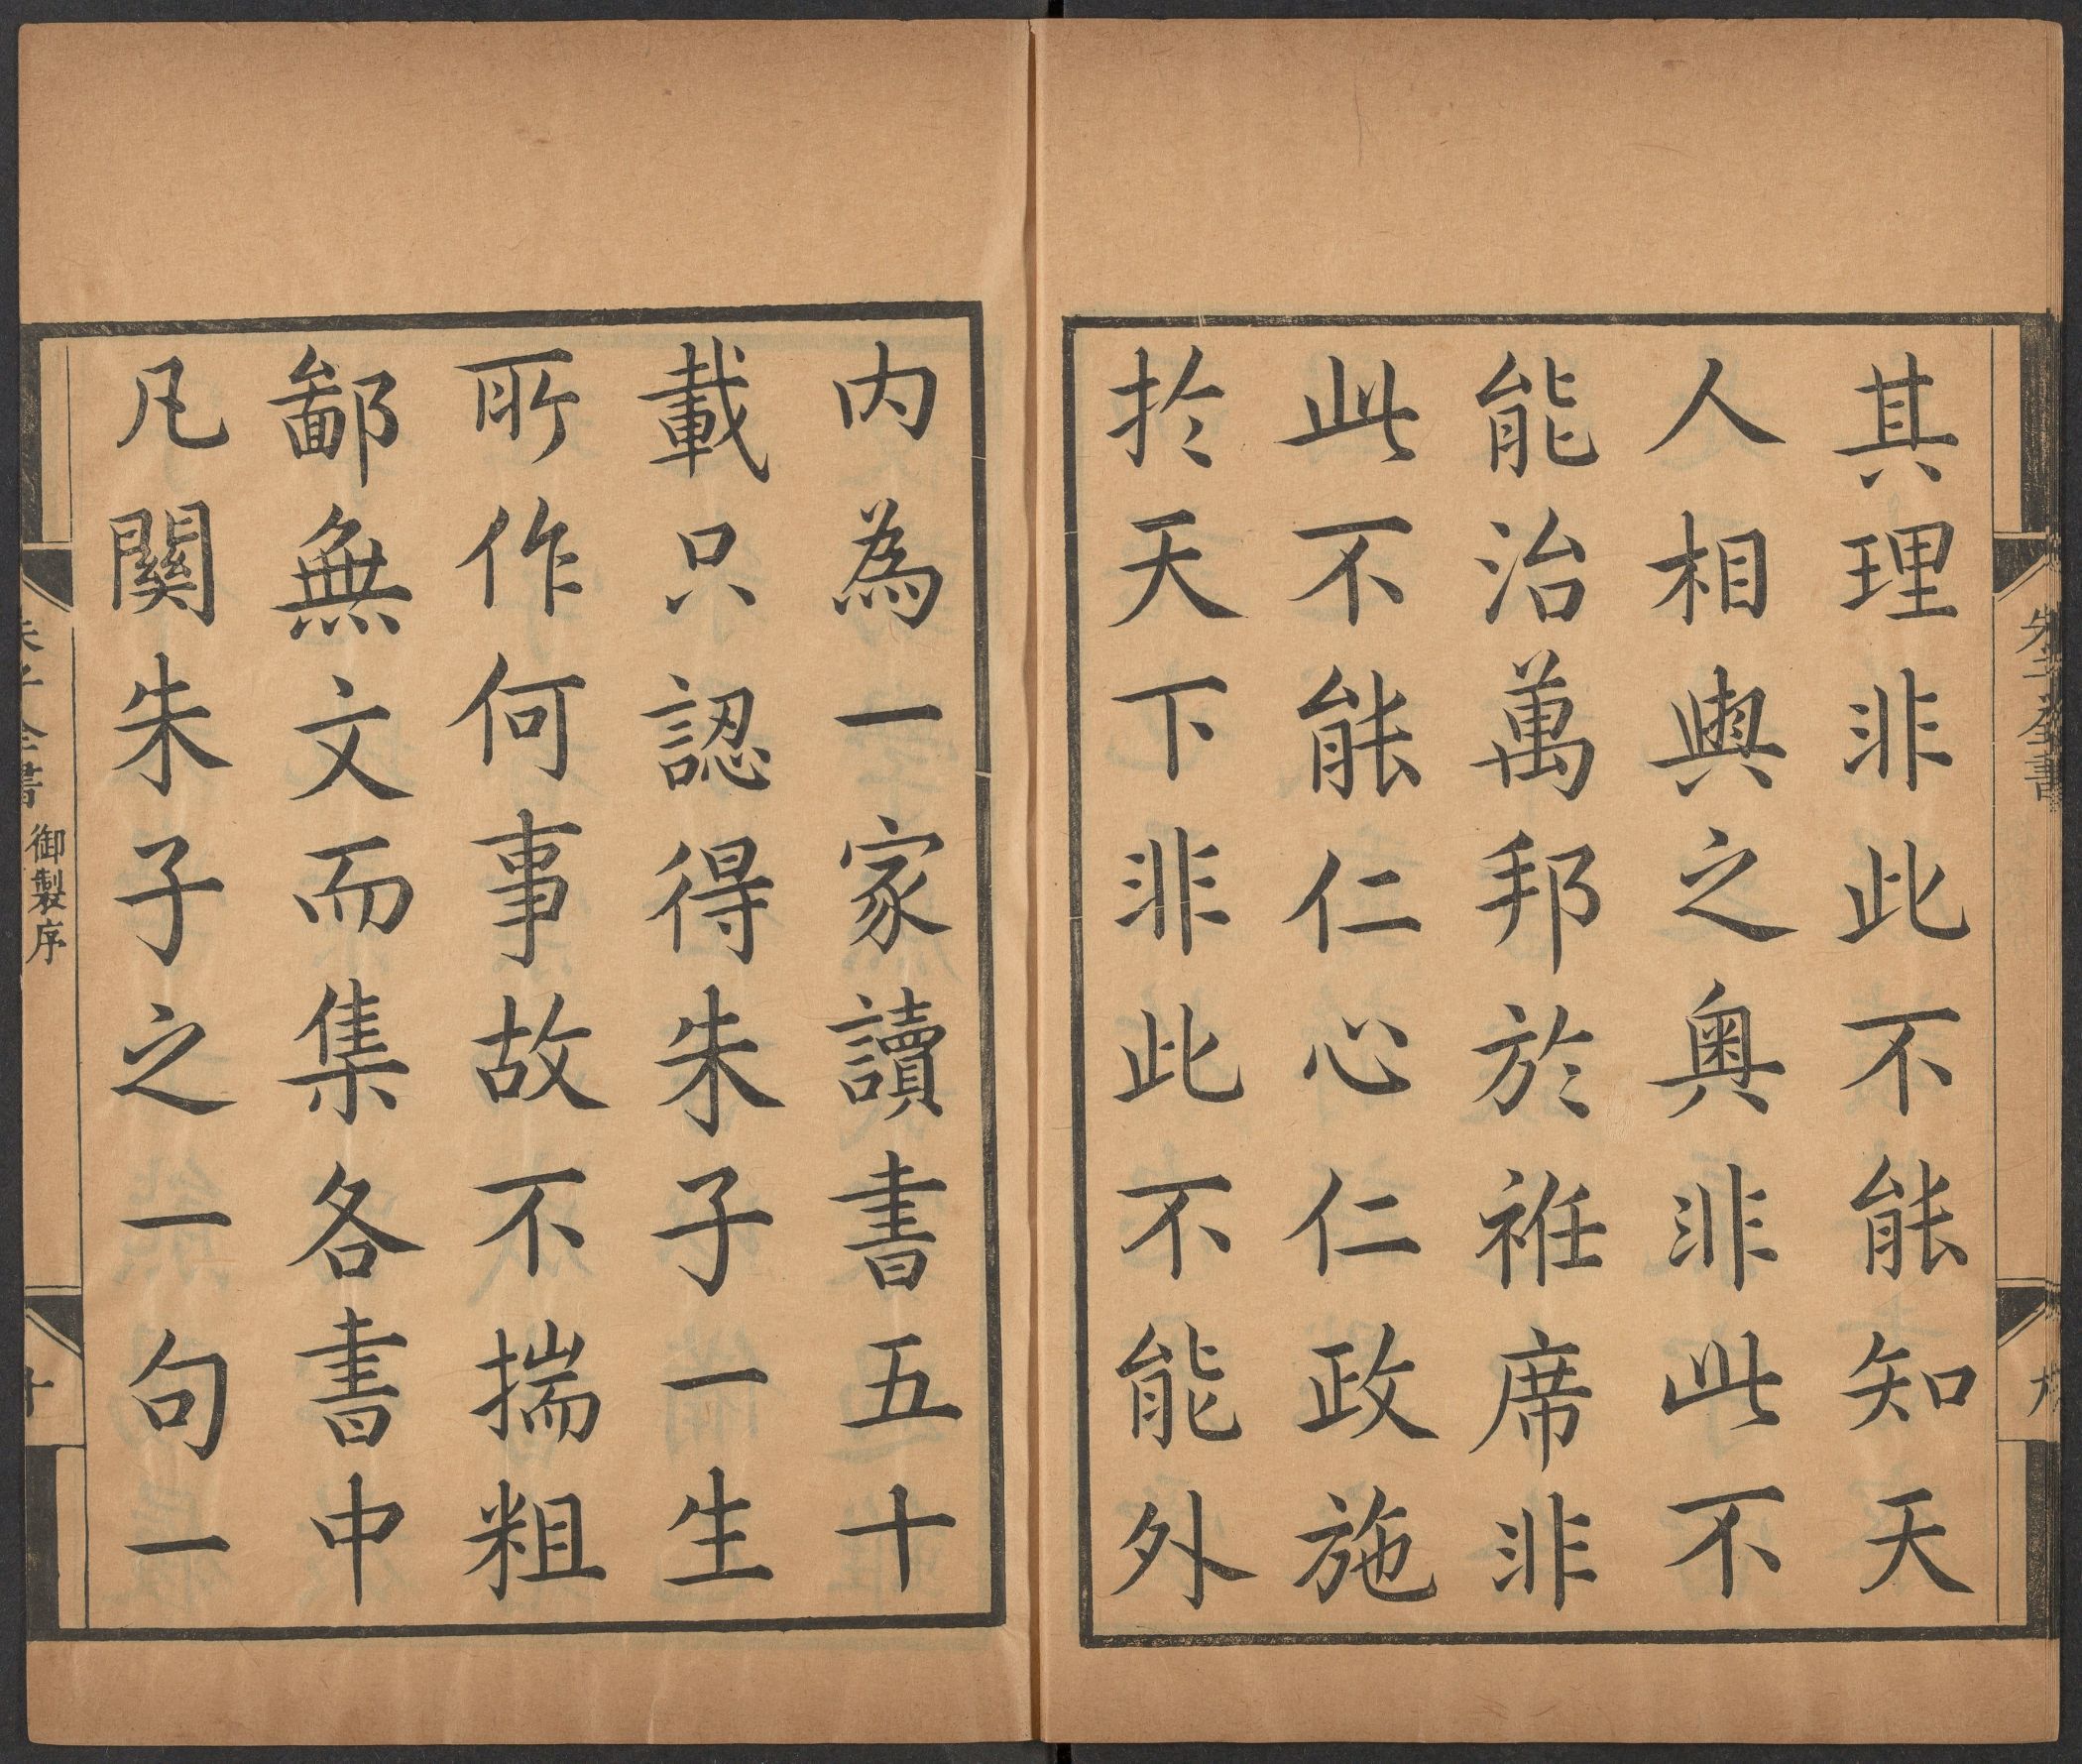 朱子全書
其理非此不能知天
人相與之奧非此不
能治萬邦於袵席非
此不能仁心仁政施
於天下非此不能外
内為一家讀書五十
載只認得朱子一生
所作何事故不揣粗
鄙無文而集各書中
凡關朱子之一句一
朱子全書
御製序
十